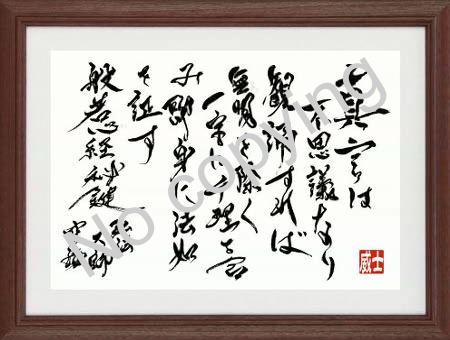 真言は
不思議なり
観誦すれば
無明を除く
一字に千理を含
み即身に法如
を証す
般若心経秘鍵
弘法
大師
空海
士威
No copying